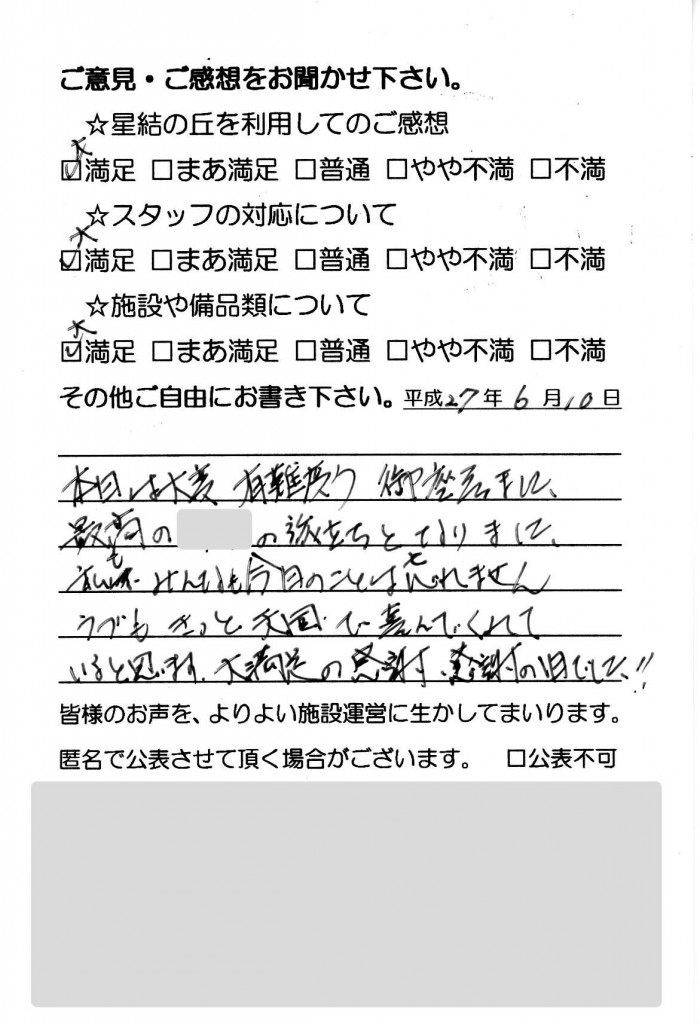 ご意見・ご感想をお聞かせ下さい。
☆星結の丘を利用してのご感想
大
☑満足 □まあ満足 □普通 □やや不満 □不満
☆スタッフの対応について
大
☑満足 □まあ満足 □普通 □やや不満 □不満
☆施設や備品類について
大
☑満足 □まあ満足 □普通 □やや不満 □不満
その他ご自由にお書き下さい。平成27年6月10日
本日は大変 有難度う 御座居ました、
最高の の旅立ちとなりました、
も みんなも今日のことは忘れません
きっと天国で喜んでくれて
いると思います、大満足の感謝、感謝の1日でした、!!
皆様のお声を、よりよい施設運営に生かしてまいります。
匿名で公表させて頂く場合がございます。 □公表不可